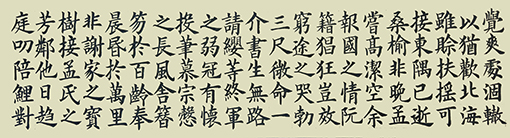 覺爽處涸轍
以猶歡北海
雖賒扶搖可
接東隅已逝
桑榆非晚孟
嘗高潔空余
報國之情阮
籍猖狂豈效
窮途之哭勃
三尺微命一
介書生無路
請纓等終軍
之弱冠有懷
投筆慕宗慤
之長風舍簪
笏於百齡奉
晨昏於萬里
非謝家之寶
樹接孟氏之
芳鄰他日趨
庭叨陪鯉對